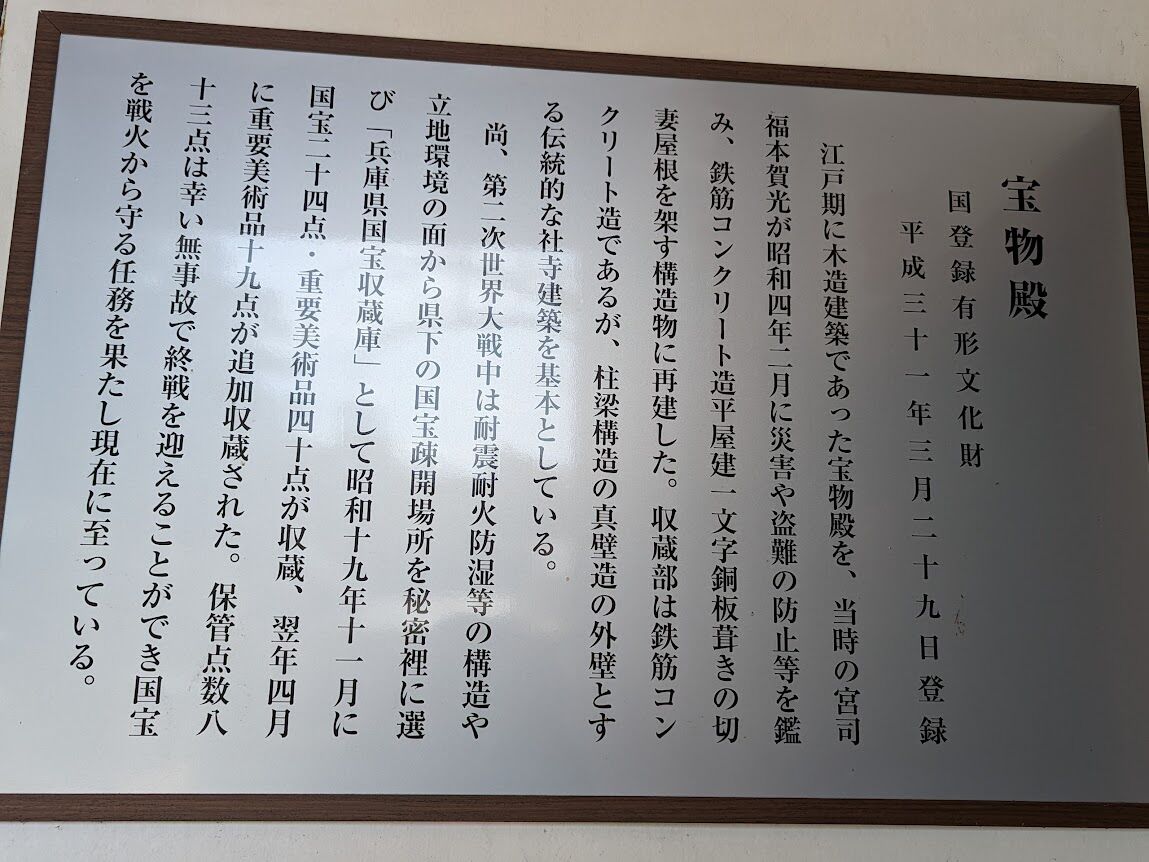 宝物殿
国登録有形文化財
平成三十一年三月二十九日登録
江戸期に木造建築であった宝物殿を、当時の宮司
福本賀光が昭和四年二月に災害や盗難の防止等を鑑
み、鉄筋コンクリート造平屋建一文字銅板葺きの切
妻屋根を架す構造物に再建した。収蔵部は鉄筋コン
クリート造であるが、柱梁構造の真壁造の外壁とす
る伝統的な社寺建築を基本としている。
尚、第二次世界大戦中は耐震耐火防湿等の構造や
立地環境の面から県下の国宝疎開場所を秘密裡に選
び「兵庫県国宝収蔵庫」として昭和十九年十一月に
国宝二十四点・重要美術品四十点が収蔵、翌年四月
に重要美術品十九点が追加収蔵された。保管点数八
十三点は幸い無事故で終戦を迎えることができ国宝
を戦火から守る任務を果たし現在に至っている。